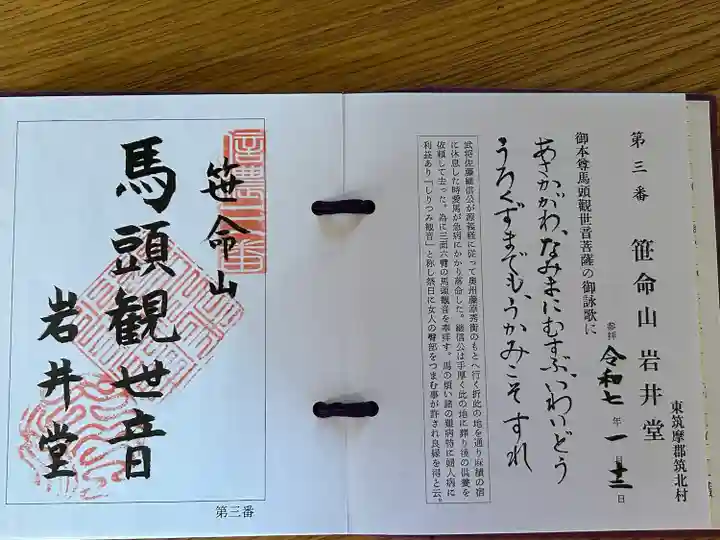 第三番 笹命山岩井堂
東筑摩郡筑北村
参拝 令和七年一月十二日
御本尊馬頭観世音菩薩の御詠歌に
あさがわ、なみまにむすぶ、いわいどう
うろくずまでも、うかみこそすれ
武将佐藤継信公が源義経に従って奥州藤原秀衡のもとへ行く折此の地を通り麻績の宿
に休息した時愛馬が急病にかかり落命した。継信公は手厚く此の地に葬り後の供養を
依頼して去った。為に三面六臂の馬頭観音を奉拝す。馬の煩い諸の難病特に婦人病に
利益あり「しりつみ観音」と称し祭日に女人の臀部をつまむ事が許され良縁を得と云。
信濃三番
笹命山
馬頭観世音
岩井堂
第三番